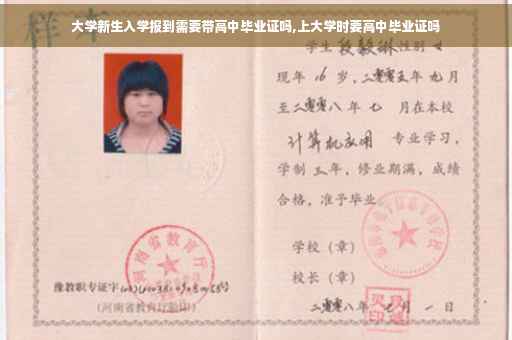 大学新生入学报到需要带高中毕业证吗,上大学时要高中毕业证吗
样本
学生 段毅琳 性别 女
现年 16 岁,二零零五年 九月
至二零零八年 七 月在本校
计算机应用 专业学习,
学制 三 年,修业期满,成绩
合格,准予毕业。
河南省教育厅
学校(章)
校长(章)
豫教职专证字
(河南省教育厅验印)
二零零八年 七 月 一 日